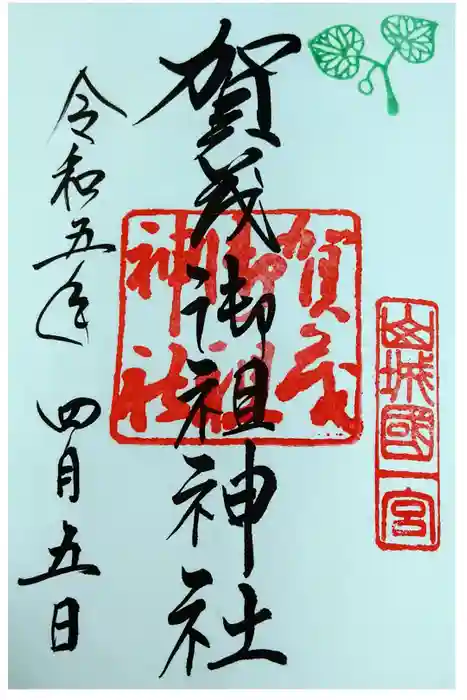 山城國一宮
賀茂御祖神社
賀茂
御祖
神社
令和五年 四月五日